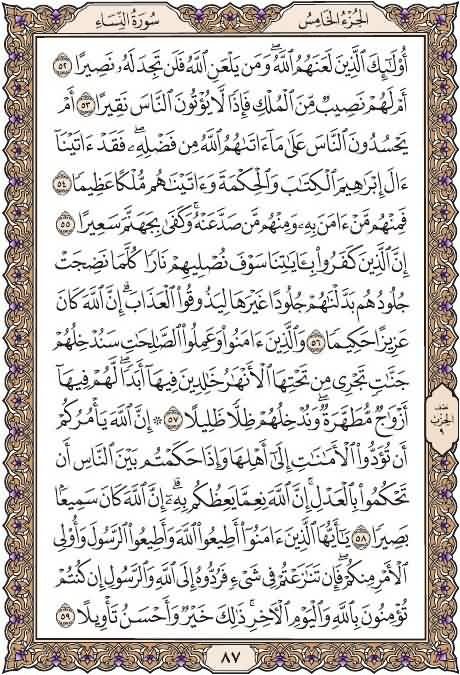 الجزء الخامس
سورة النساء
أُوْلَٰٓئِكَ ٱلَّذِينَ لَعَنَهُمُ ٱللَّهُۖ وَمَن يَلْعَنِ ٱللَّهُ فَلَن تَجِدَ لَهُۥ نَصِيرًا ٥٢
أَمْ لَهُمْ نَصِيبٌ مِّنَ ٱلْمُلْكِ فَإِذًا لَّا يُؤْتُونَ ٱلنَّاسَ نَقِيرًا ٥٣ أَمْ
يَحْسُدُونَ ٱلنَّاسَ عَلَىٰ مَآ ءَاتَىٰهُمُ ٱللَّهُ مِن فَضْلِهِۦۖ فَقَدْ ءَاتَيْنَآ
ءَالَ إِبْرَٰهِيمَ ٱلْكِتَٰبَ وَٱلْحِكْمَةَ وَءَاتَيْنَٰهُم مُّلْكًا عَظِيمًا ٥٤
فَمِنْهُم مَّنْ ءَامَنَ بِهِۦ وَمِنْهُم مَّن صَدَّ عَنْهُۚ وَكَفَىٰ بِجَهَنَّمَ سَعِيرًا ٥٥
إِنَّ ٱلَّذِينَ كَفَرُوا۟ بِـَٔايَٰتِنَا سَوْفَ نُصْلِيهِمْ نَارًا كُلَّمَا نَضِجَتْ
جُلُودُهُم بَدَّلْنَٰهُمْ جُلُودًا غَيْرَهَا لِيَذُوقُوا۟ ٱلْعَذَابَۗ إِنَّ ٱللَّهَ كَانَ
عَزِيزًا حَكِيمًا ٥٦ وَٱلَّذِينَ ءَامَنُوا۟ وَعَمِلُوا۟ ٱلصَّٰلِحَٰتِ سَنُدْخِلُهُمْ
جَنَّٰتٍ تَجْرِى مِن تَحْتِهَا ٱلْأَنْهَٰرُ خَٰلِدِينَ فِيهَآ أَبَدًاۖ لَّهُمْ فِيهَآ
أَزْوَٰجٌ مُّطَهَّرَةٌۖ وَنُدْخِلُهُمْ ظِلًّا ظَلِيلًا ٥٧ ۞ إِنَّ ٱللَّهَ يَأْمُرُكُمْ
أَن تُؤَدُّوا۟ ٱلْأَمَٰنَٰتِ إِلَىٰٓ أَهْلِهَا وَإِذَا حَكَمْتُم بَيْنَ ٱلنَّاسِ أَن
تَحْكُمُوا۟ بِٱلْعَدْلِۚ إِنَّ ٱللَّهَ نِعِمَّا يَعِظُكُم بِهِۦٓۗ إِنَّ ٱللَّهَ كَانَ سَمِيعًۢا
بَصِيرًا ٥٨ يَٰٓأَيُّهَا ٱلَّذِينَ ءَامَنُوٓا۟ أَطِيعُوا۟ ٱللَّهَ وَأَطِيعُوا۟ ٱلرَّسُولَ وَأُو۟لِى
ٱلْأَمْرِ مِنكُمْۖ فَإِن تَنَٰزَعْتُمْ فِى شَىْءٍ فَرُدُّوهُ إِلَى ٱللَّهِ وَٱلرَّسُولِ إِن كُنتُمْ
تُؤْمِنُونَ بِٱللَّهِ وَٱلْيَوْمِ ٱلْءَاخِرِۚ ذَٰلِكَ خَيْرٌ وَأَحْسَنُ تَأْوِيلًا ٥٩
نصف
الحزب
٩
٨٧